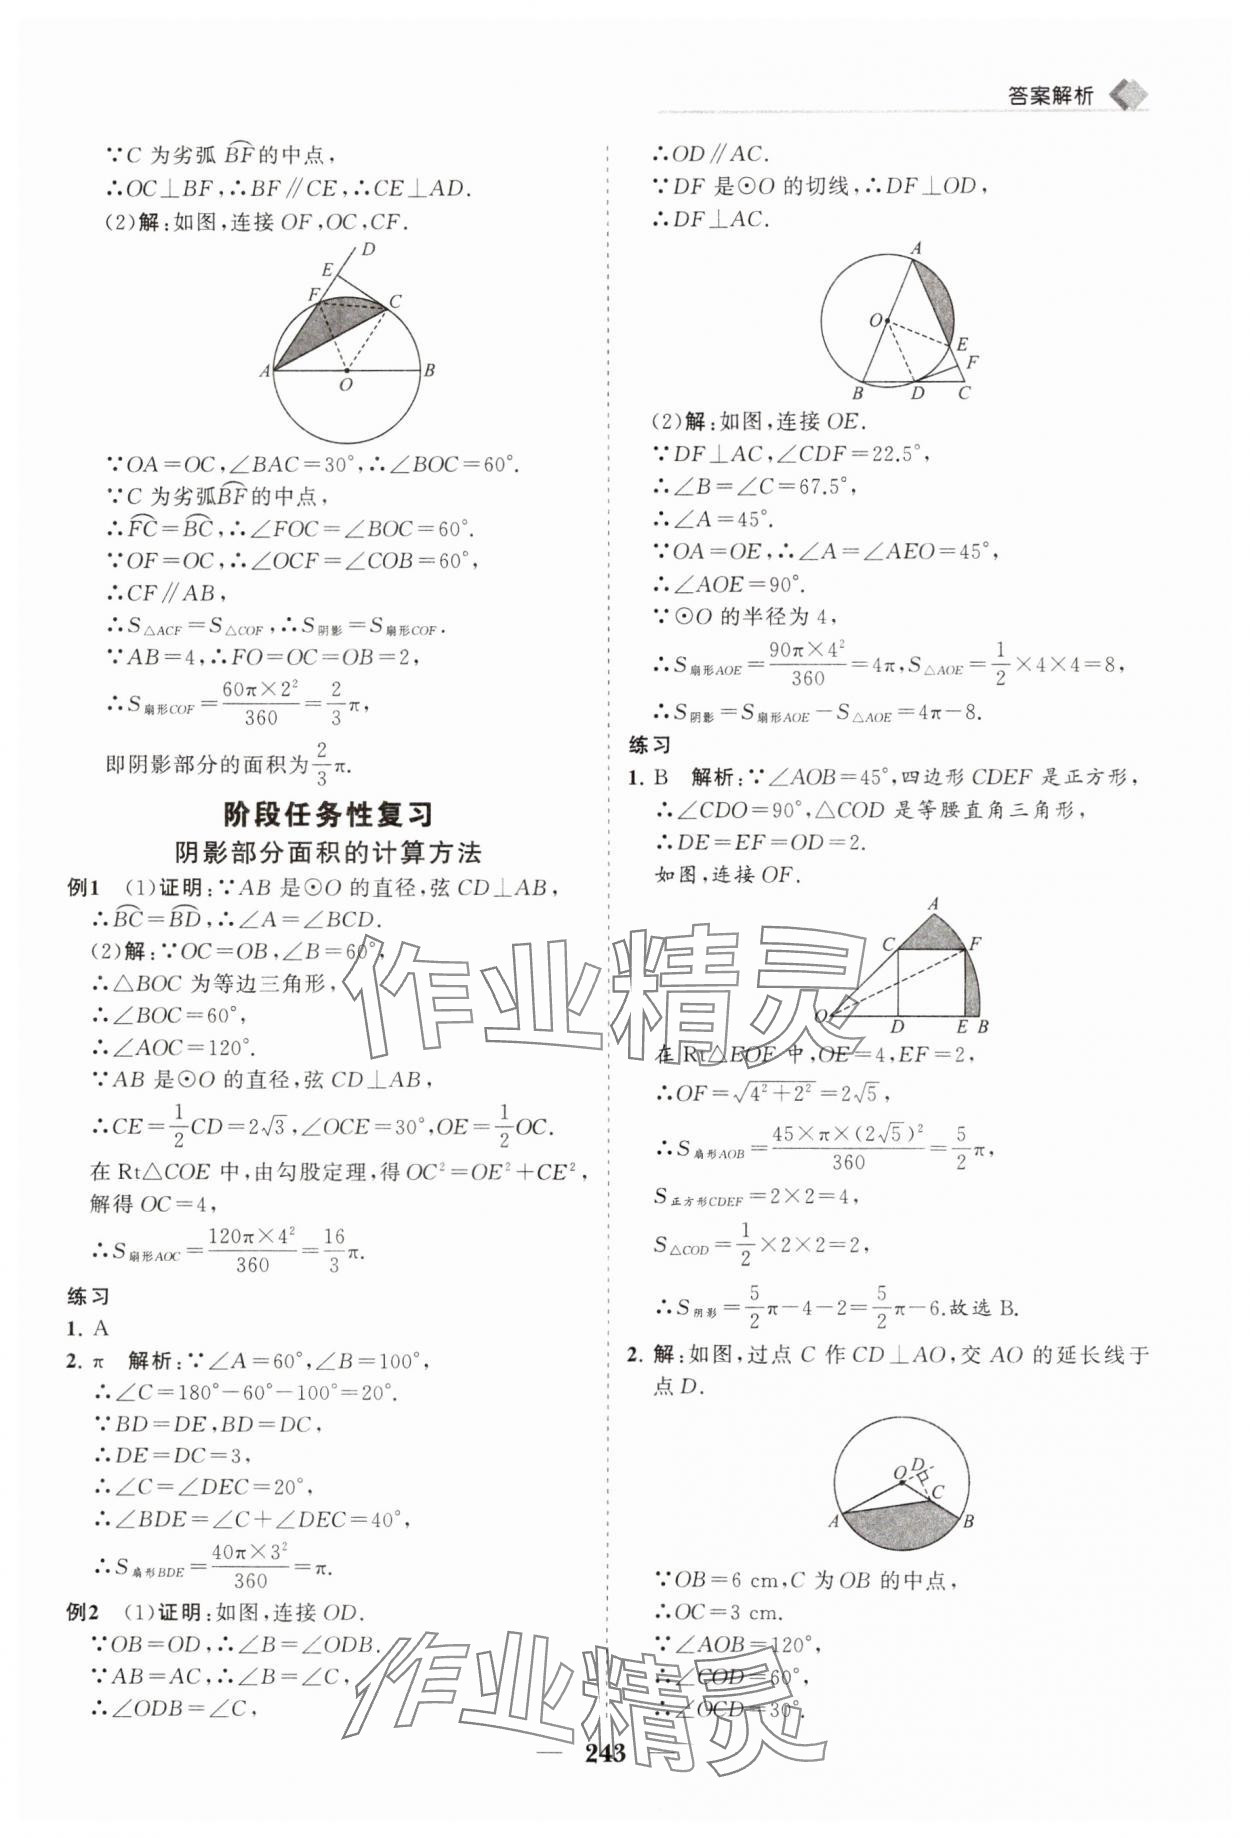 答案解析
∵C 为劣弧 BF 的中点，
∴OC⊥BF，∴BF∥CE，∴CE⊥AD.
(2)解：如图，连接 OF，OC，CF.
D
E
F
C
A
O
B
∵OA=OC，∠BAC=30°，∴∠BOC=60°.
∵C 为劣弧BF的中点，
∴FC=BC，∴∠FOC=∠BOC=60°.
∵OF=OC，∴∠OCF=∠COB=60°，
∴CF∥AB，
∴S△ACF=S△COF，∴S阴影=S扇形COF.
∵AB=4，∴FO=OC=OB=2，
∴S扇形COF=60π×2²/360=2/3π，
即阴影部分的面积为2/3π.
阶段任务性复习
阴影部分面积的计算方法
例1 (1)证明：∵AB 是⊙O 的直径，弦 CD⊥AB，
∴BC=BD，∴∠A=∠BCD.
(2)解：∵OC=OB，∠B=60°，
∴△BOC 为等边三角形，
∴∠BOC=60°，
∴∠AOC=120°.
∵AB 是⊙O 的直径，弦 CD⊥AB，
∴CE=1/2CD=2√3，∠OCE=30°，OE=1/2OC.
在 Rt△COE 中，由勾股定理，得 OC²=OE²+CE²，
解得 OC=4，
∴S扇形AOC=120π×4²/360=16/3π.
练习
1. A
2. π 解析：∵∠A=60°，∠B=100°，
∴∠C=180°−60°−100°=20°.
∵BD=DE，BD=DC，
∴DE=DC=3，
∴∠C=∠DEC=20°，
∴∠BDE=∠C+∠DEC=40°，
∴S扇形BDE=40π×3²/360=π.
例2 (1)证明：如图，连接 OD.
∵OB=OD，∴∠B=∠ODB.
∵AB=AC，∴∠B=∠C，
∴∠ODB=∠C，
∴OD∥AC.
∵DF 是⊙O 的切线，∴DF⊥OD，
∴DF⊥AC.
A
O
E
F
B
D
C
(2)解：如图，连接 OE.
∵DF⊥AC，∠CDF=22.5°，
∴∠B=∠C=67.5°，
∴∠A=45°.
∵OA=OE，∴∠A=∠AEO=45°，
∴∠AOE=90°.
∵⊙O 的半径为 4，
∴S扇形AOE=90π×4²/360=4π，S△AOE=1/2×4×4=8，
∴S阴影=S扇形AOE−S△AOE=4π−8.
练习
1. B 解析：∵∠AOB=45°，四边形 CDEF 是正方形，
∴∠CDO=90°，△COD 是等腰直角三角形，
∴DE=EF=OD=2.
如图，连接 OF.
A
C
F
O
D
E
B
在 Rt△EOF 中，OE=4，EF=2，
∴OF=√4²+2²=2√5，
∴S扇形AOB=45×π×(2√5)²/360=5/2π，
S正方形CDEF=2×2=4，
S△COD=1/2×2×2=2，
∴S阴影=5/2π−4−2=5/2π−6.故选 B.
2. 解：如图，过点 C 作 CD⊥AO，交 AO 的延长线于
点 D.
O
D
C
A
B
∵OB=6 cm，C 为 OB 的中点，
∴OC=3 cm.
∵∠AOB=120°，
∴∠COD=60°，
∴∠OCD=30°.
243
作业精灵
作业精灵